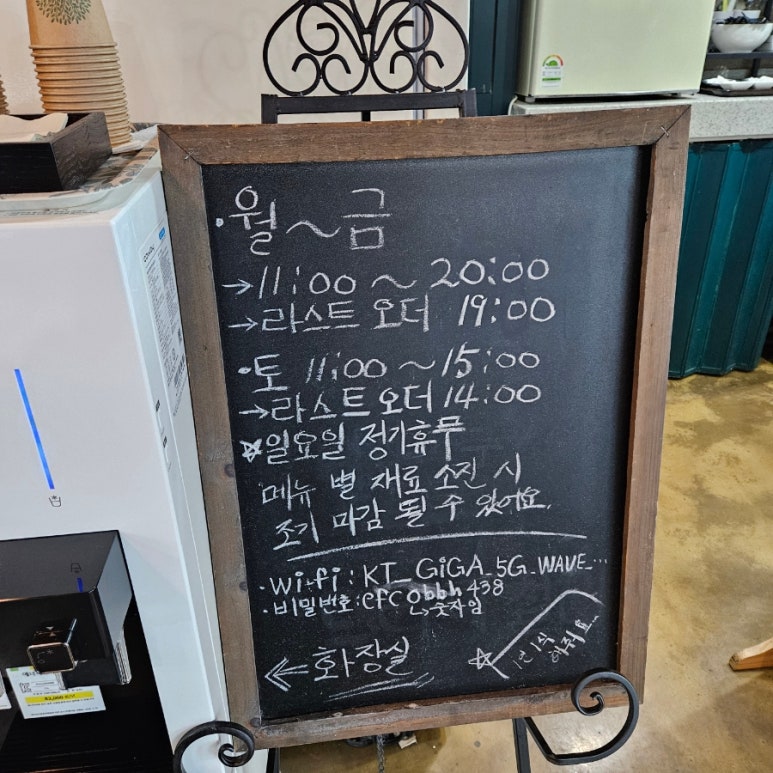 ·월~금
→11:00 ~ 20:00
→라스트 오더 19:00
·토 11:00 ~15:00
→라스트 오더 14:00
☆일요일 정기휴무
메뉴 별 재료 소진 시
조기 마감 될 수 있어요.
·wi-fi : KT_GiGA_5G_WAVE_…
·비밀번호:efc0bbh438
↳숫자임
← 화장실
☆ 1인 1식
해줘요...